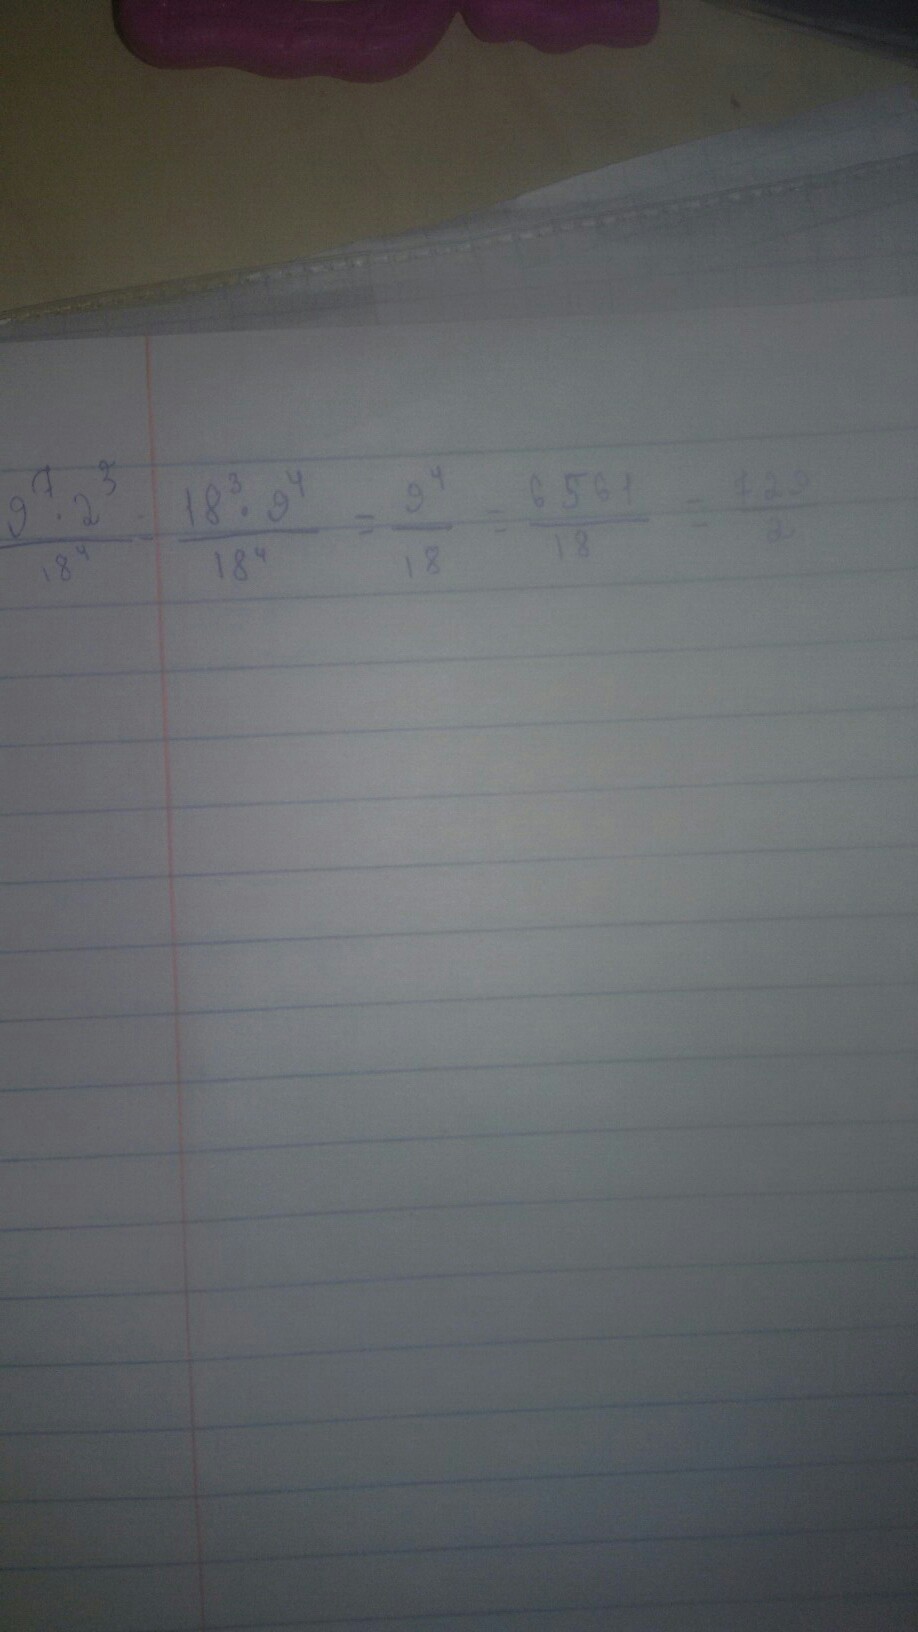 9⁷·2³/18⁴ = 18³·9⁴/18⁴ = 9⁴/18 = 6561/18 = 729/2